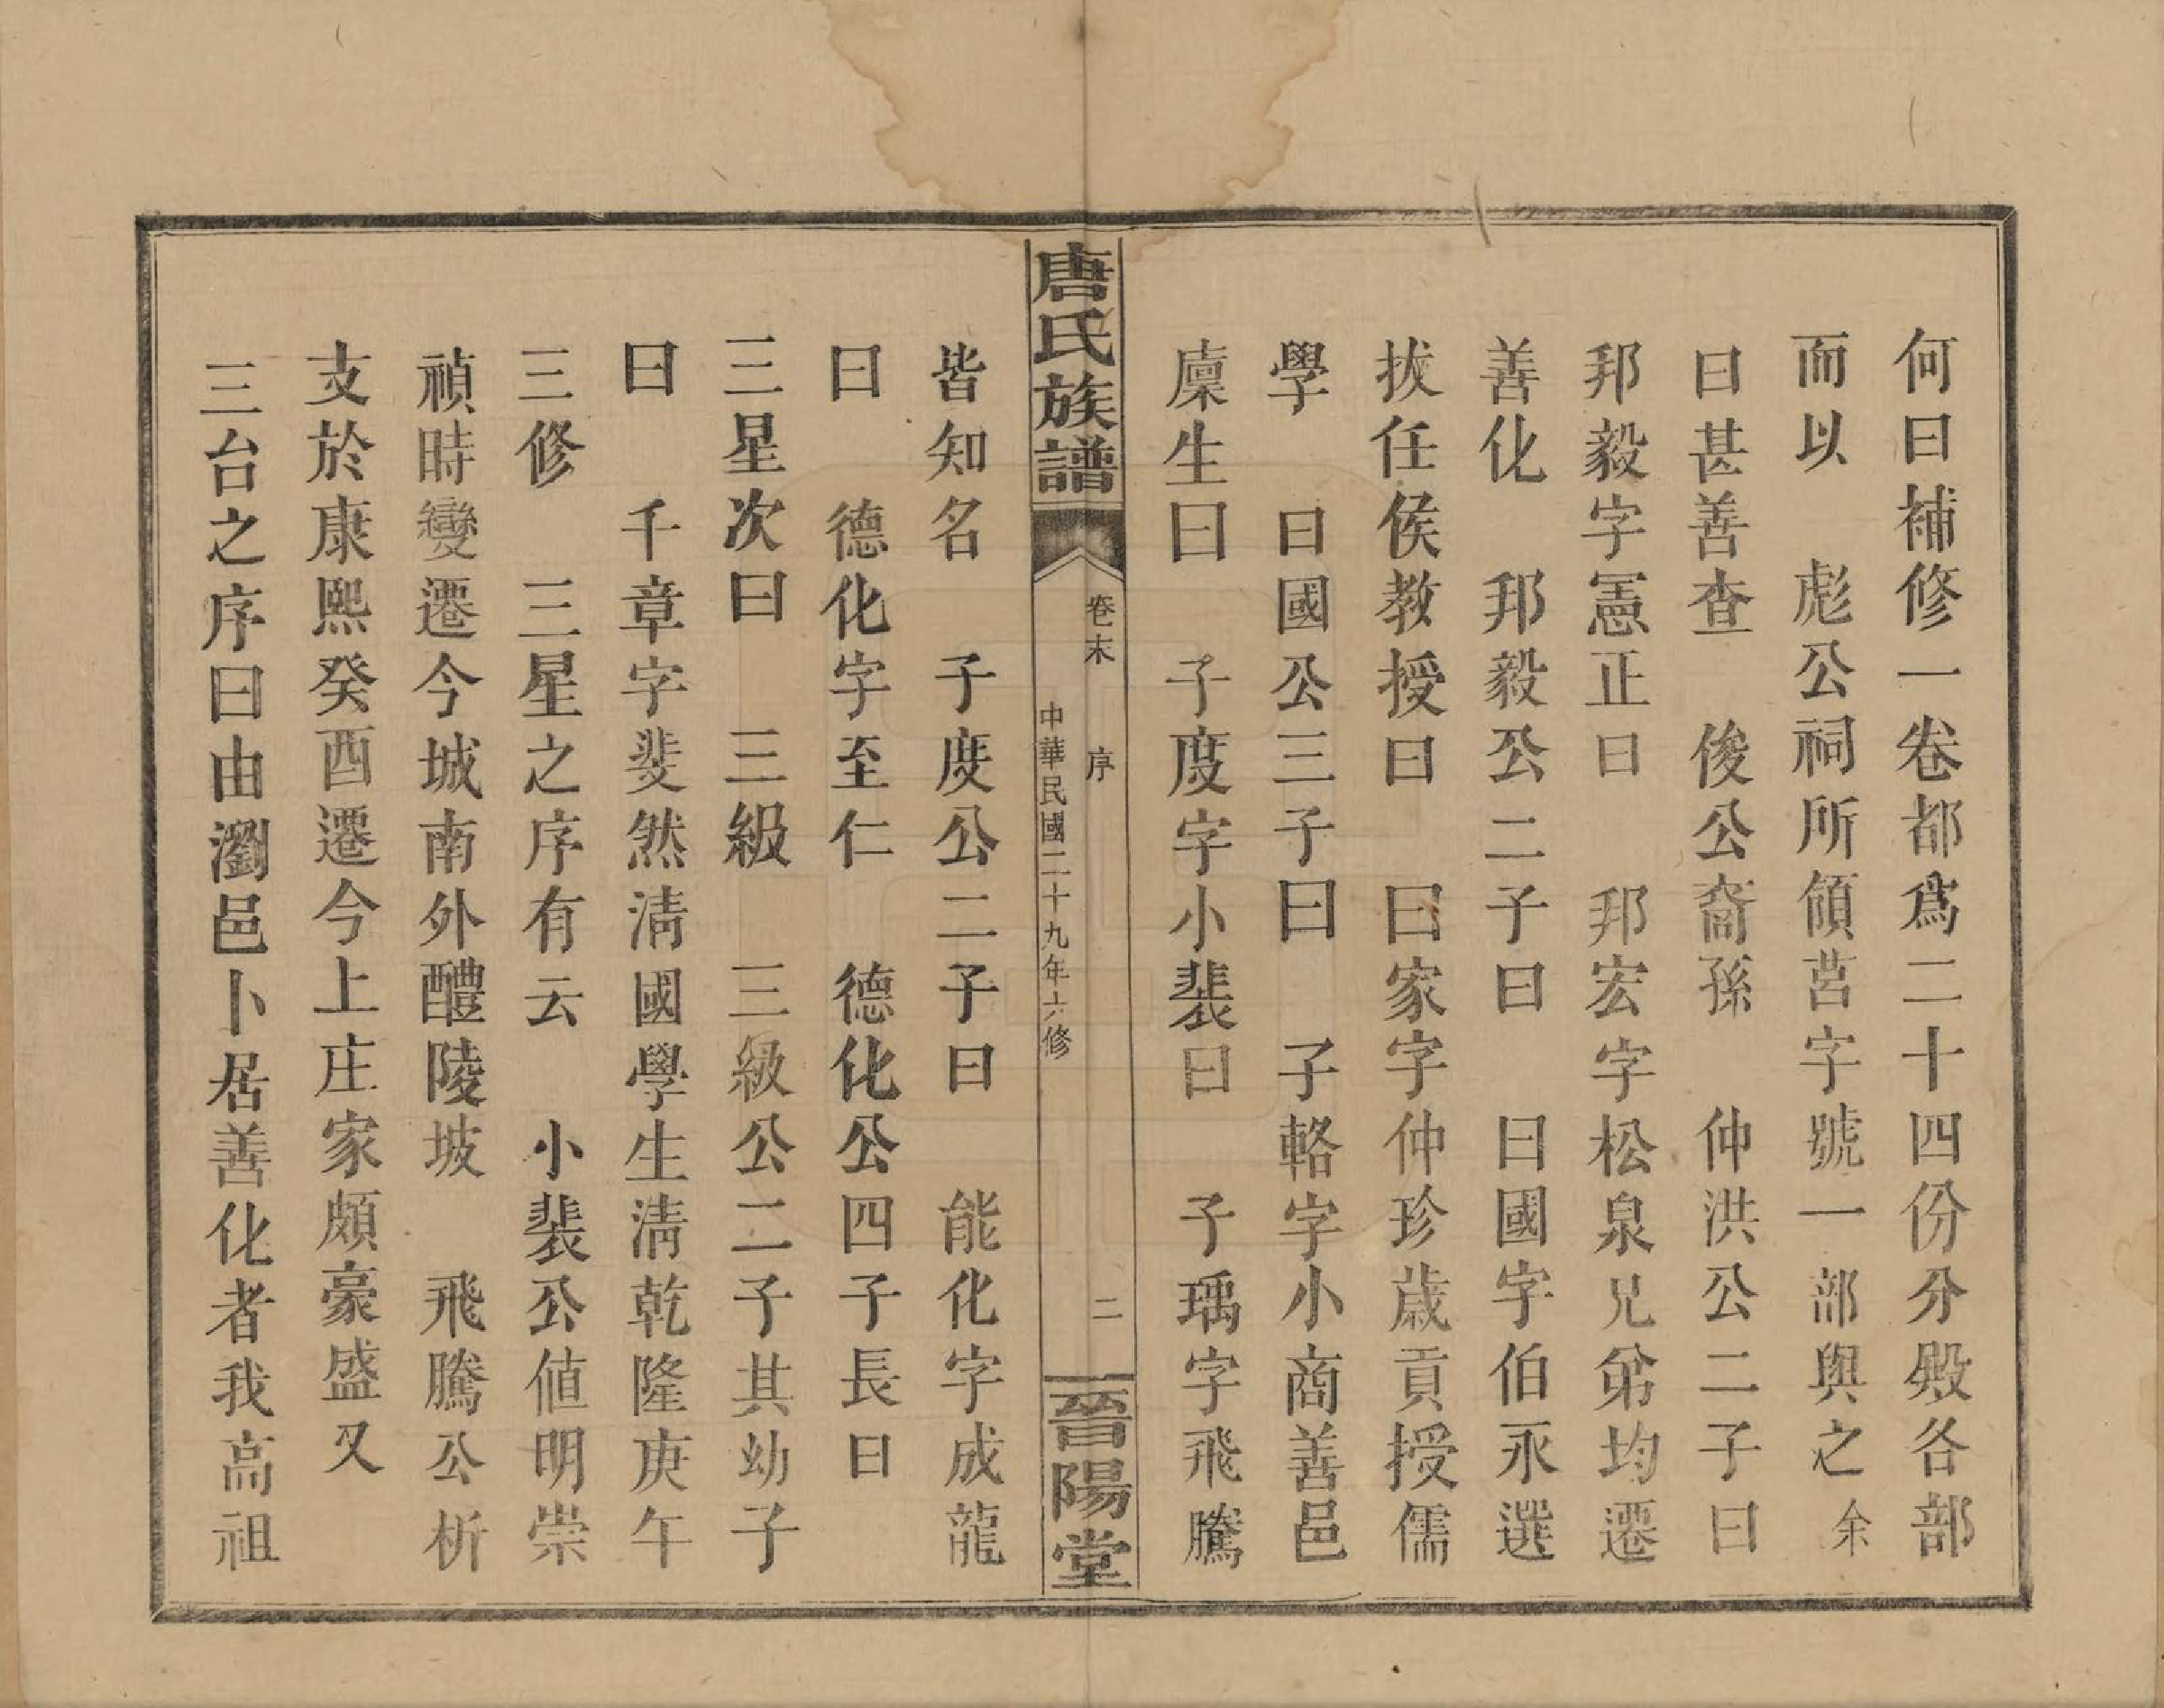 何曰補修一卷都爲二十四份分殿各部
而以　彪公祠所領莒字號一部與之余
曰甚善查　俊公裔孫　仲洪公二子曰
邦毅字憲正曰　邦宏字松泉兄弟均遷
善化　邦毅公二子曰　曰國字伯永選
拔任侯教授曰　曰家字仲珍歲貢授儒
學　曰國公三子曰　子輅字小商善邑
廩生曰　子度字小裴曰　子瑀字飛騰
唐氏族譜
卷末　序
中華民國二十九年六修
二
晉陽堂
皆知名　子度公二子曰　能化字成龍
曰　德化字至仁　德化公四子長曰
三星次曰　三級　三級公二子其幼子
曰　千章字斐然清國學生清乾隆庚午
三修　三星之序有云　小裴公値明崇
禎時變遷今城南外醴陵坡　飛騰公析
支於康熙癸酉遷今上庄家頗豪盛又
三台之序曰由瀏邑卜居善化者我高祖